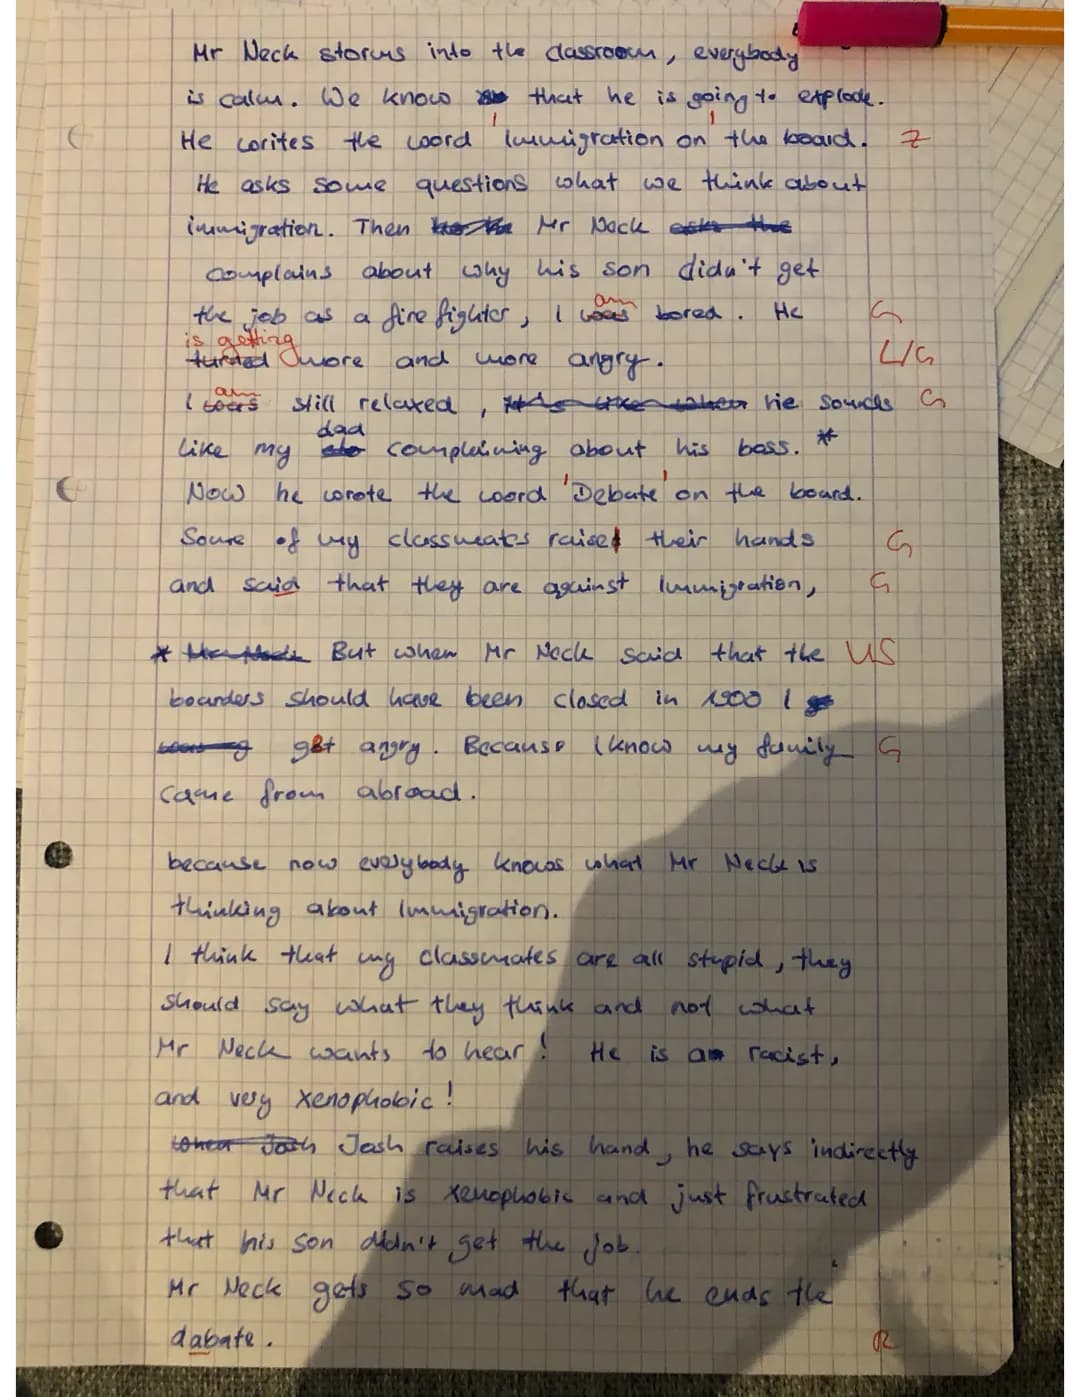 Mr Neck storms into the classroom, everybody
is calm. We know that he is going to explode.
He writes the word 'Immigration on' the board. Z
He asks some questions what we think about
immigration. Then Mr Neck
complains about why his son didn't get
the job as a fire fighter, I am bored. He G
is getting
more and more angry. L/G
I am still relaxed, he sounds G
like my dad complaining about his boss. *
Now he wrote the word 'Debate' on the board.
Some of my classmates raise their hands G
and said that they are against Immigration, G
* But when Mr Neck said that the US
boarders should have been closed in 1900 I
get angry. Because I know my family G
came from abroad.
because now everybody knows what Mr Neck is
thinking about Immigration.
I think that my classmates are all stupid, they
should say what they think and not what
Mr Neck wants to hear! He is a racist,
and very xenophobic!
Josh raises his hand, he says indirectly
that Mr Neck is xenophobic and just frustrated
that his son didn't get the job.
Mr Neck gets so mad that he ends the
dabate. R